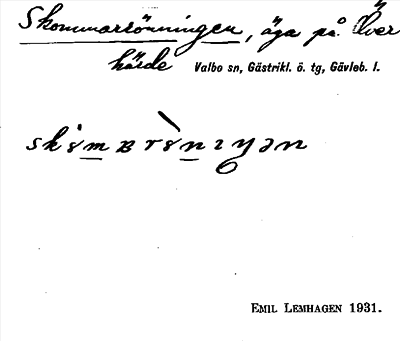 Skommarrönningen, äga på Över
härde Valbo sn, Gästrikl. ö. tg, Gävleb. l.
EMIL LEMHAGEN 1931.